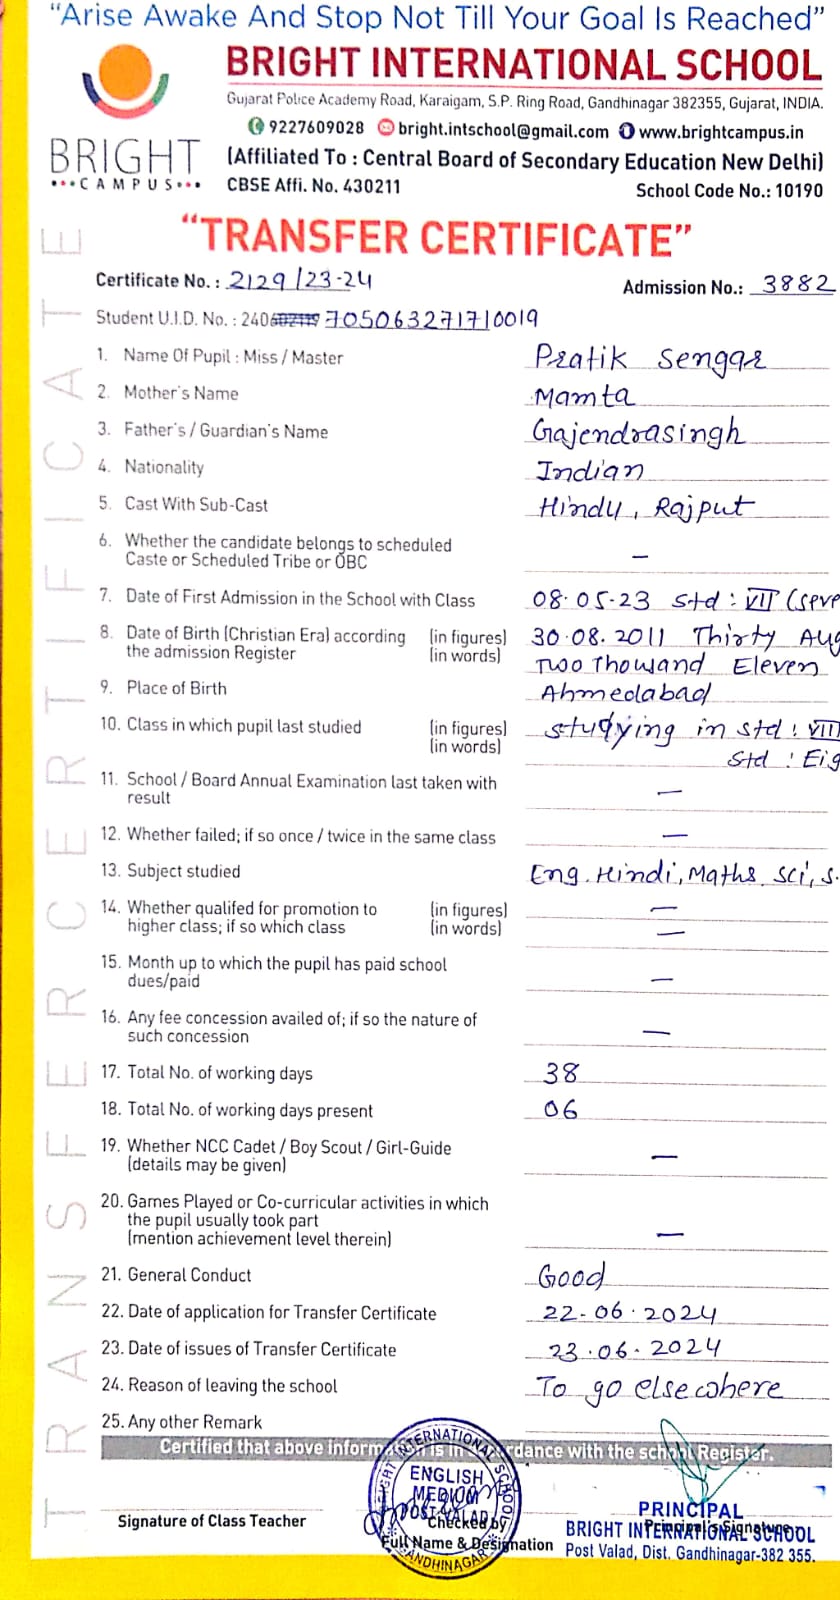 “Arise Awake And Stop Not Till Your Goal Is Reached”
BRIGHT INTERNATIONAL SCHOOL
Gujarat Police Academy Road, Karaigam, S.P. Ring Road, Gandhinagar 382355, Gujarat, INDIA.
9227609028 bright.intschool@gmail.com www.brightcampus.in
BRIGHT
CAMPUS
(Affiliated To : Central Board of Secondary Education New Delhi)
CBSE Affi. No. 430211 School Code No.: 10190
“TRANSFER CERTIFICATE”
TRANSFER CERTIFICATE
Certificate No. : 2129/23-24 Admission No.: 3882
Student U.I.D. No. : 240 705063271710019
1. Name Of Pupil : Miss / Master Pratik Sengar
2. Mother's Name Mamta
3. Father's / Guardian's Name Gajendrasingh
4. Nationality Indian
5. Cast With Sub-Cast Hindu, Rajput
6. Whether the candidate belongs to scheduled
Caste or Scheduled Tribe or OBC —
7. Date of First Admission in the School with Class 08.05.23 Std : VII (seve
8. Date of Birth (Christian Era) according (in figures) 30.08.2011 Thirty Aug
the admission Register (in words) Two Thousand Eleven
9. Place of Birth Ahmedabad
10. Class in which pupil last studied (in figures) studying in std : VIII
(in words) Std : Eig
11. School / Board Annual Examination last taken with
result —
12. Whether failed; if so once / twice in the same class —
13. Subject studied Eng. Hindi, Maths, Sci, S.
14. Whether qualifed for promotion to (in figures) —
higher class; if so which class (in words) —
15. Month up to which the pupil has paid school
dues/paid —
16. Any fee concession availed of; if so the nature of
such concession —
17. Total No. of working days 38
18. Total No. of working days present 06
19. Whether NCC Cadet / Boy Scout / Girl-Guide
(details may be given) —
20. Games Played or Co-curricular activities in which
the pupil usually took part
(mention achievement level therein) —
21. General Conduct Good
22. Date of application for Transfer Certificate 22-06-2024
23. Date of issues of Transfer Certificate 23.06.2024
24. Reason of leaving the school To go elsewhere
25. Any other Remark
Certified that above information is in accordance with the school Register.
BRIGHT INTERNATIONAL SCHOOL
ENGLISH
MEDIUM
POST VALAD
GANDHINAGAR
Signature of Class Teacher
Checked by
Full Name & Designation
Principal's Signature
PRINCIPAL
BRIGHT INTERNATIONAL SCHOOL
Post Valad, Dist. Gandhinagar-382 355.